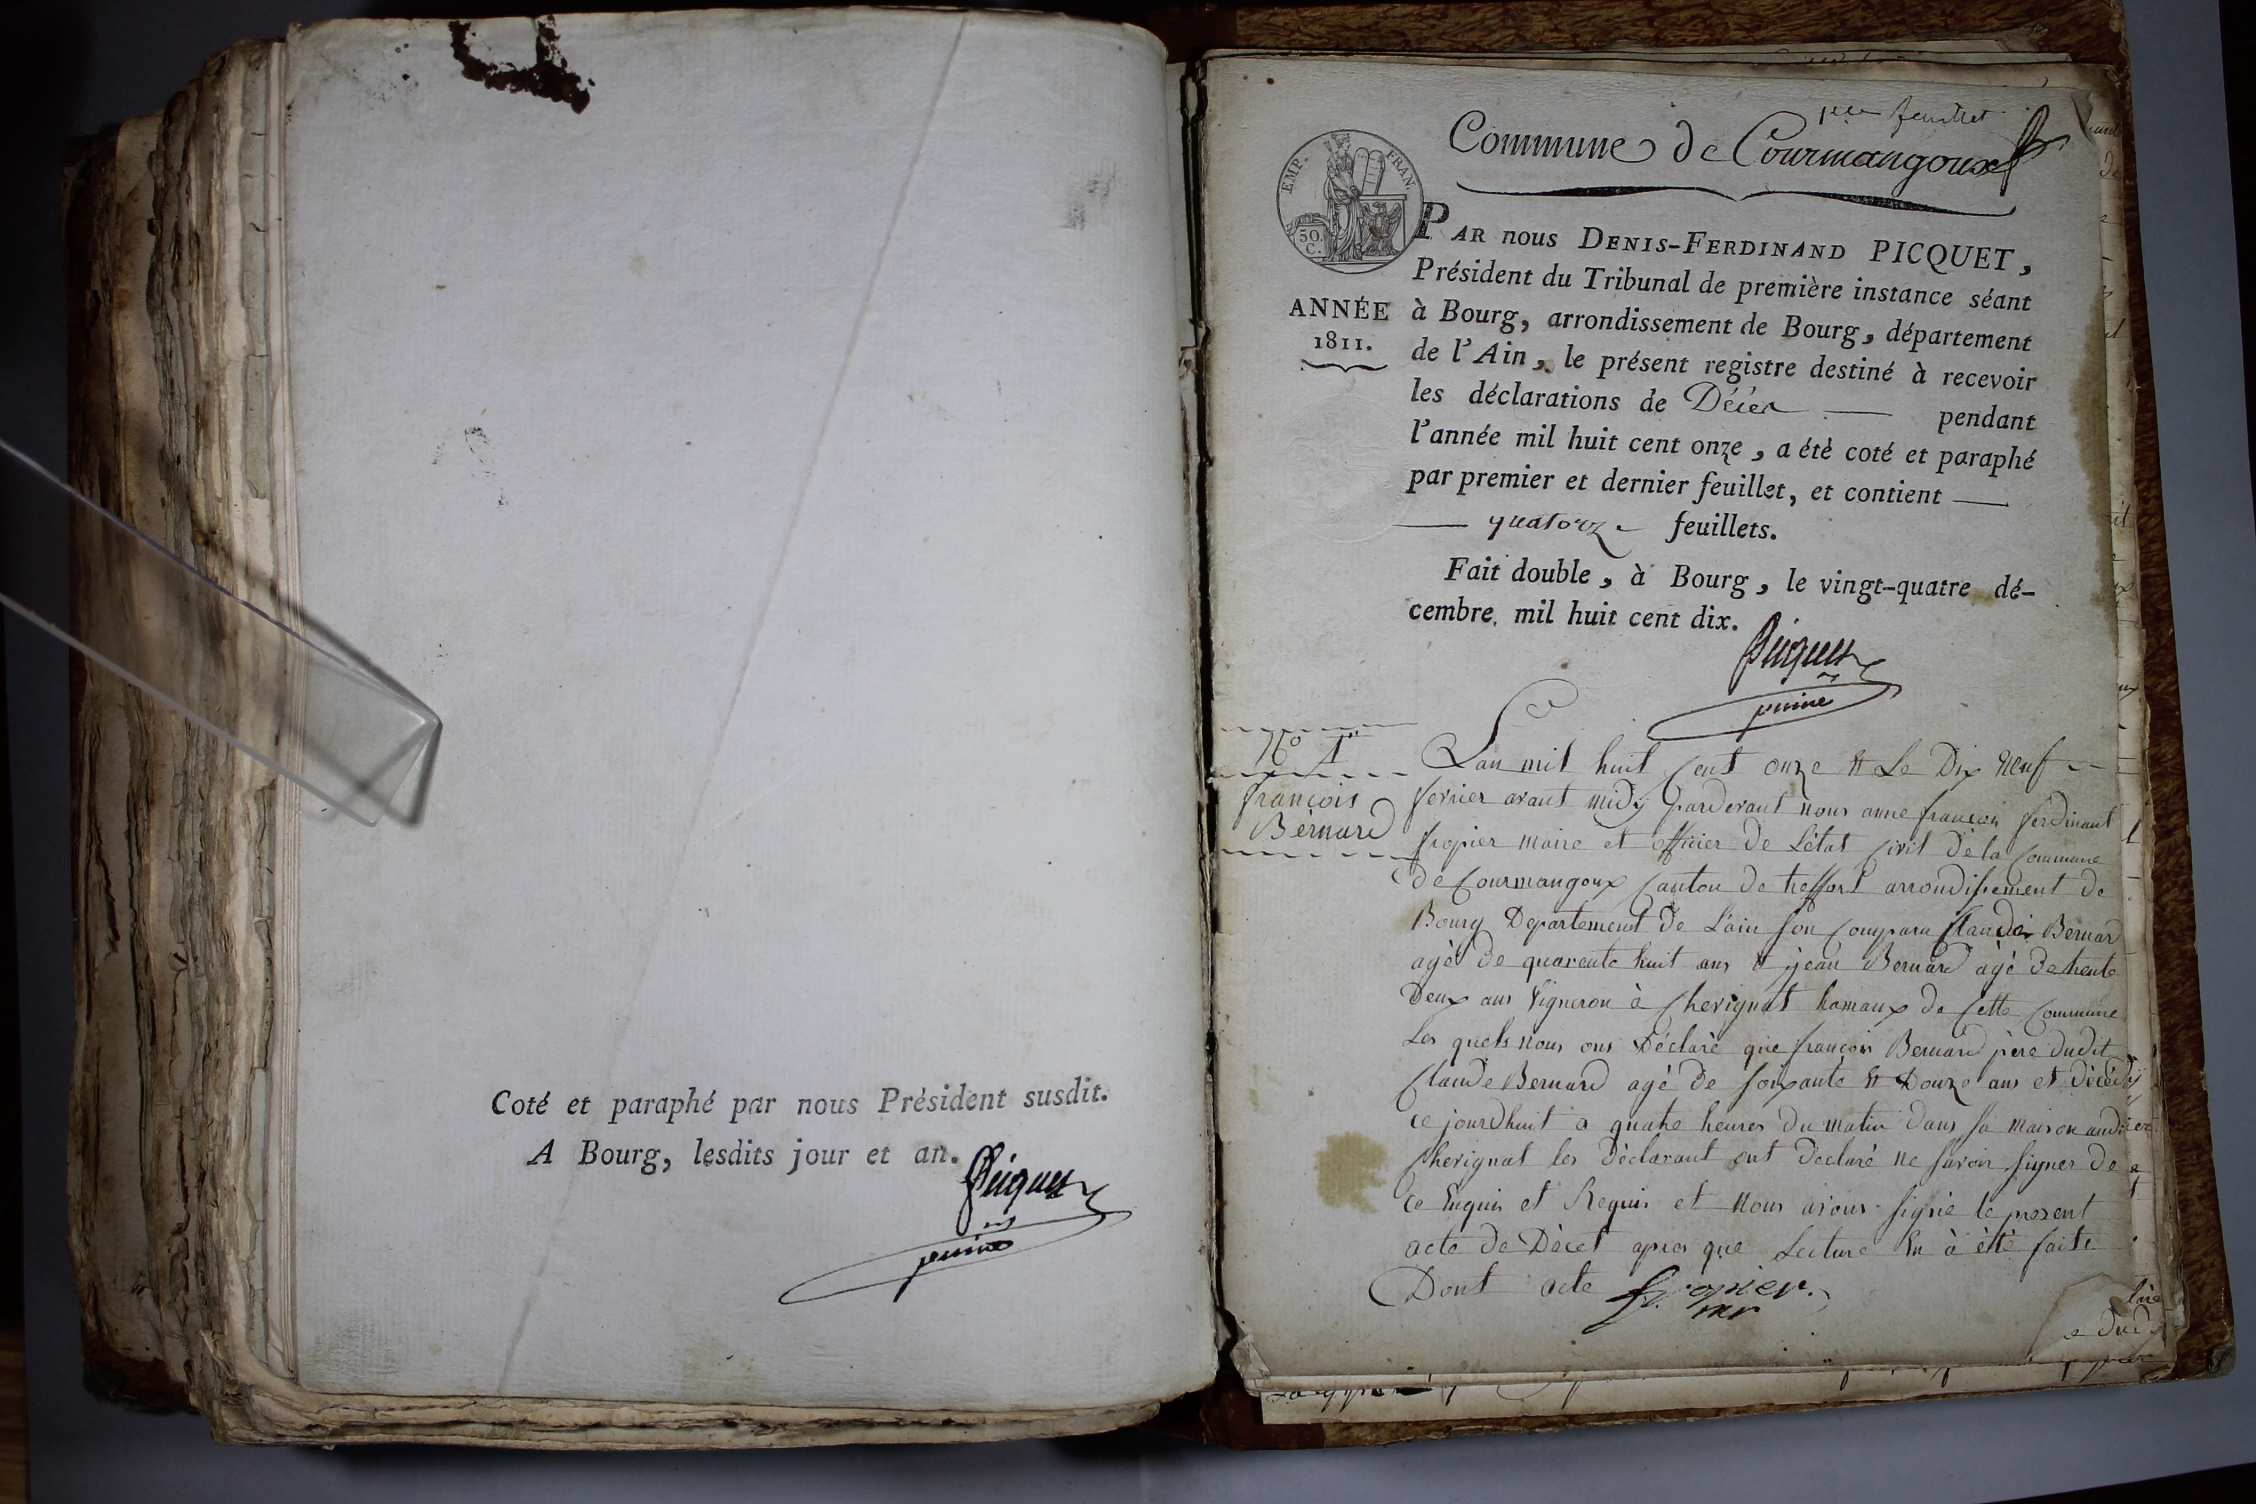 Coté et paraphé par nous Président susdit.
A Bourg, lesdits jour et an.
Picquet
feuillet
Commune de Courmangoux
EMP. FRAN.
50.
C.
ANNÉE
1811.
PAR nous DENIS-FERDINAND PICQUET,
Président du Tribunal de première instance séant
à Bourg, arrondissement de Bourg, département
de l'Ain, le présent registre destiné à recevoir
les déclarations de Décès — pendant
l'année mil huit cent onze, a étè coté et paraphé
par premier et dernier feuillet, et contient —
— quatorze feuillets.
Fait double, à Bourg, le vingt-quatre dé-
cembre mil huit cent dix.
Picquet
No 1er
françois
Bérnard
Lan mil huit cent onze & Le Dix neuf
fevrier avant midy pardevant nous anne françois ferdinant
fropier maire et officier de Létat Civil dela Commune
de Courmangoux Canton de treffort arrondissement de
Bourg Departement de Lain son Comparu Claude Bernar
agè de quarente huit ans & jean Bernard agè de trente
deux ans Vigneron à Chevignat hamaux de Cette Commune
Les quels nous ons Déclarè que françois Bernard père dudit
Claude Bernard agè de soixante & Douze ans et dècèdé
ce jourdhuit a quatre heures du matin dans sa maison audit
Chevignat les dèclarant ont declaré ne savoir signer de
ce Enquis et Requis et nous avons signé le present
acte de Dècet apres que Lecture En à étè faite
Dont acte fropier
mr